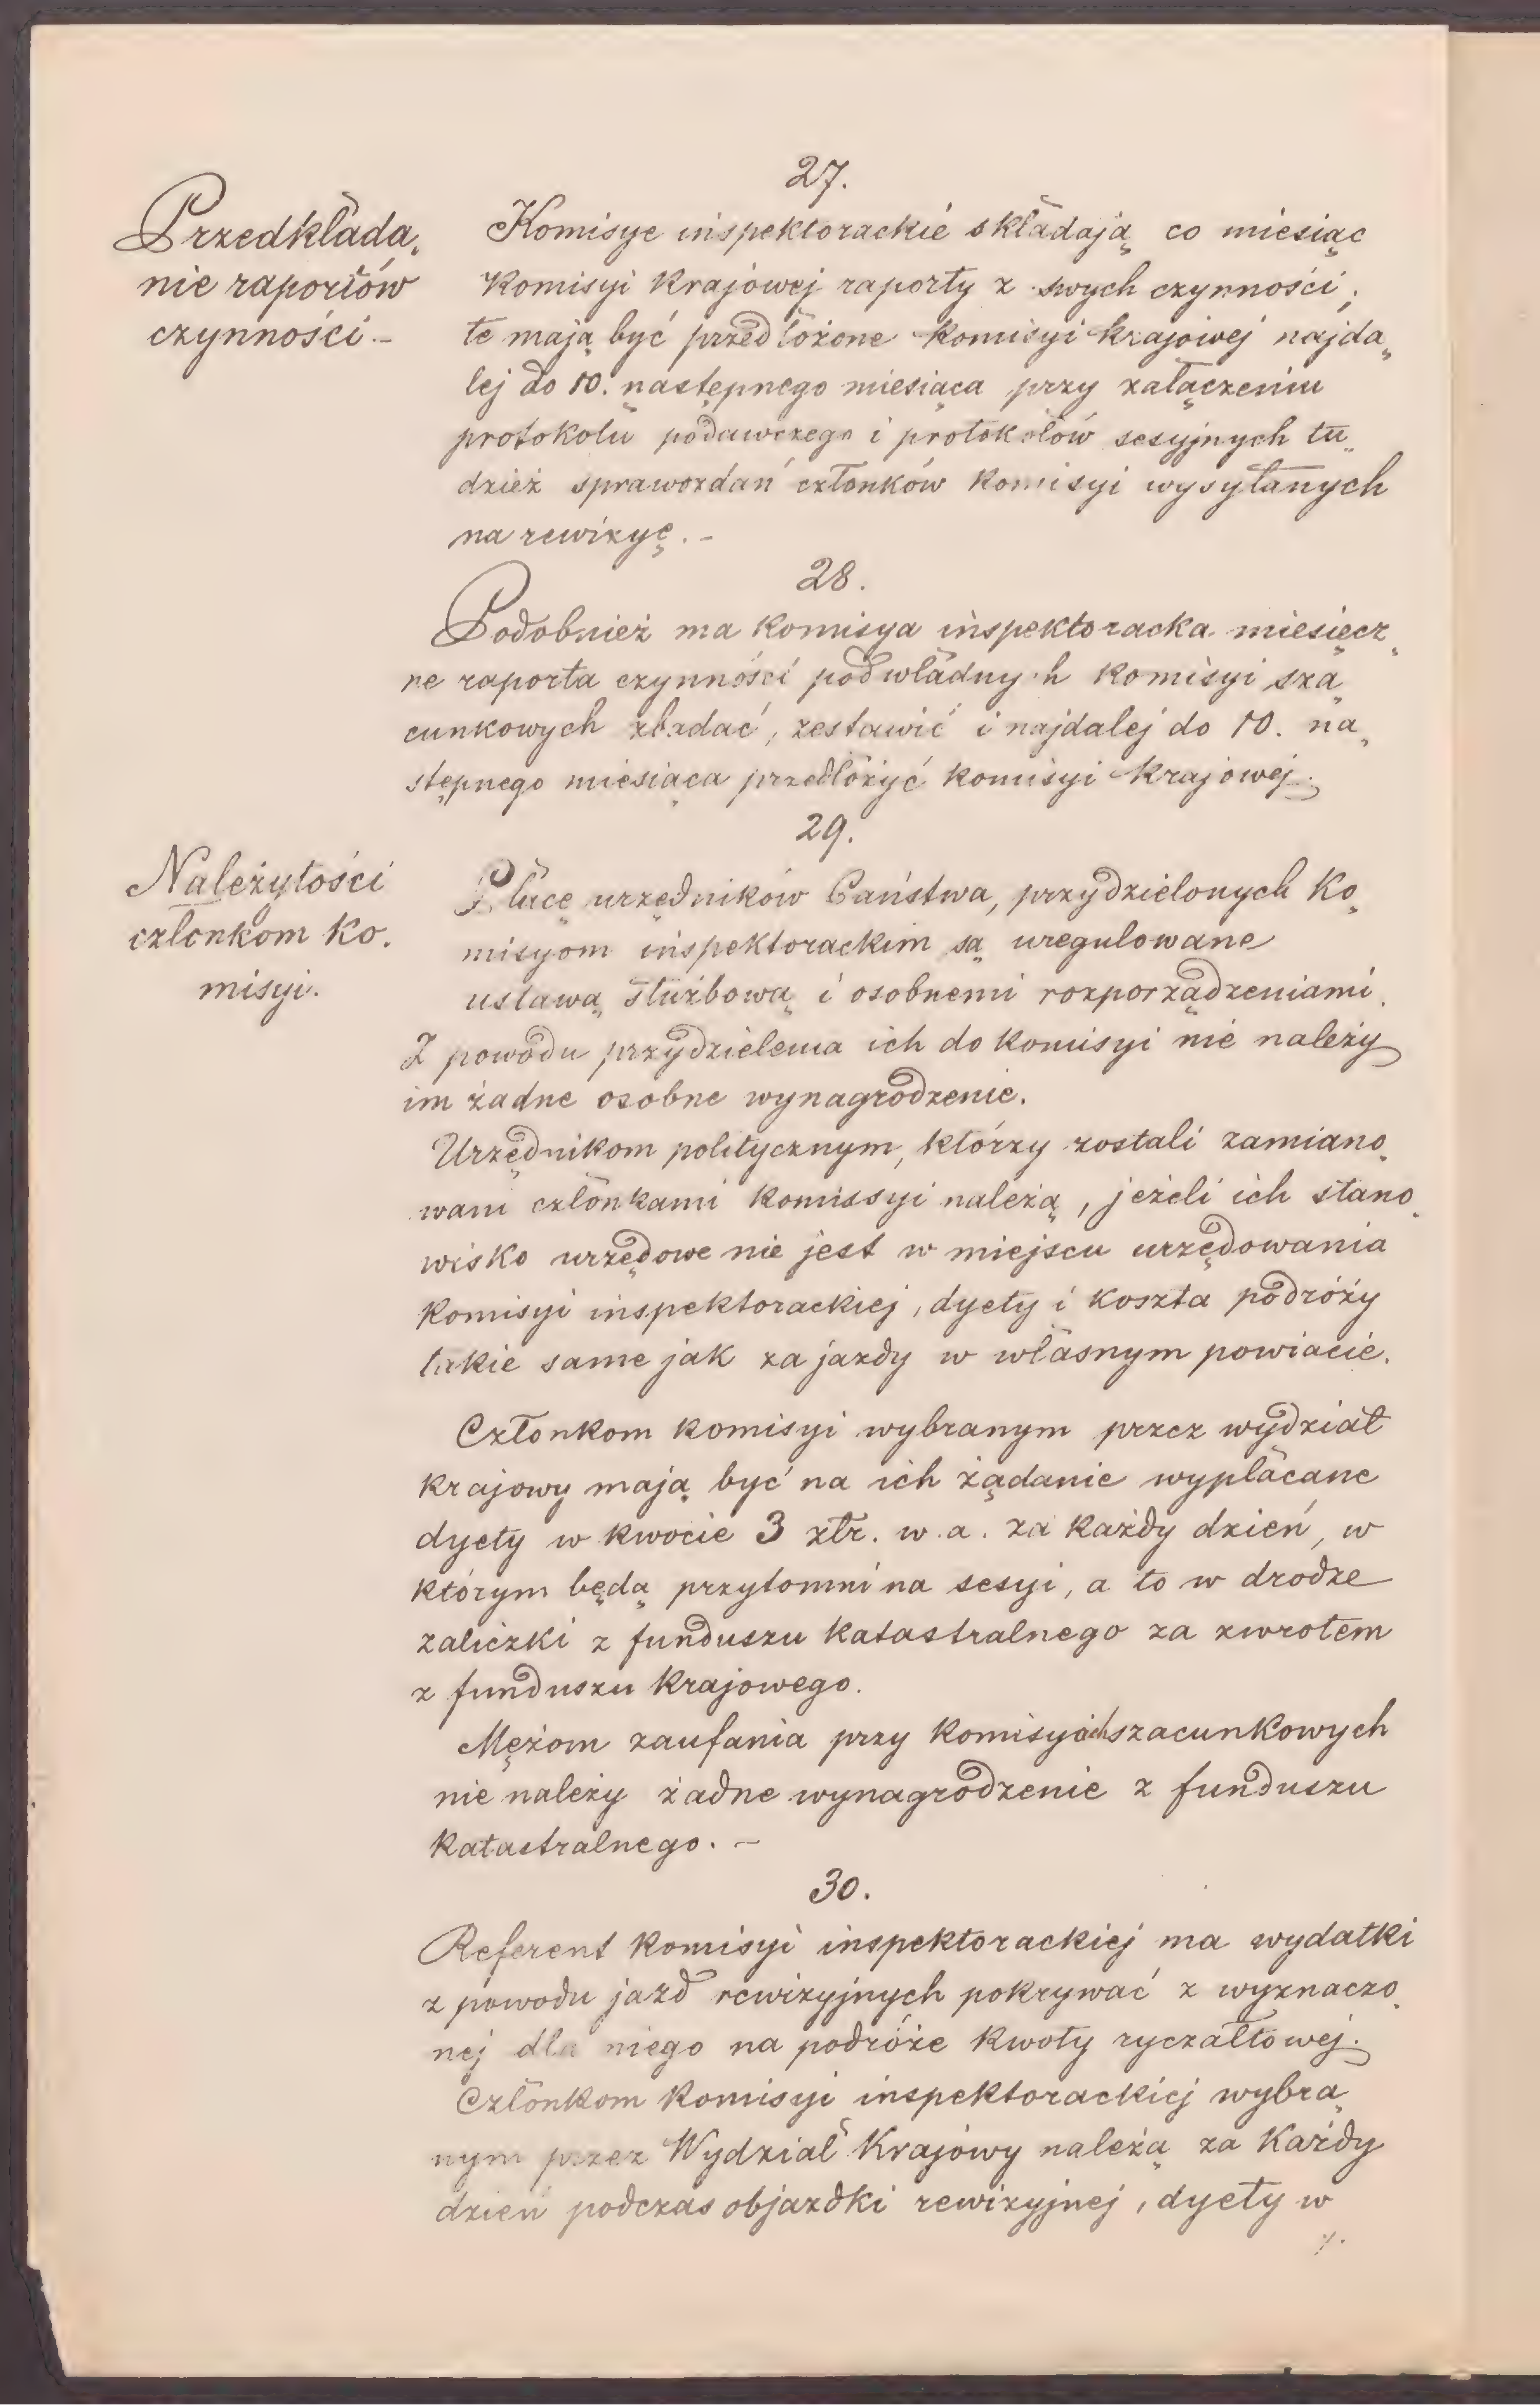 27.
Przedkłada„
nie raportów
czynności. –
Komisye inspektorackie składają co miesiąc
Komisyi Krajowej raporty z swych czynności;
te mają być przedłożone Komisyi krajowej najda„
lej do 10. następnego miesiąca przy załączeniu
protokołu podawczego i protokołów sesyjnych tu„
dzież sprawozdań członków Komisyi wysyłanych
na rewizyę. –
28.
Podobnież ma Komisya inspektoracka miesięcz„
ne raporta czynności podwładnych Komisyi sza„
cunkowych zbadać, zestawić i najdalej do 10. na„
stępnego miesiąca przedłożyć Komisyi Krajowej.
29.
Należytości
członkom Ko„
misyi.
Płace urzędników Państwa, przydzielonych Ko„
misyom inspektorackim są uregulowane
ustawą służbową i osobnemi rozporządzeniami.
Z powodu przydzielenia ich do Komisyi nie należy
im żadne osobne wynagrodzenie.
Urzędnikom politycznym, którzy zostali zamiano„
wani członkami Komissyi należą, jeżeli ich stano„
wisko urzędowe nie jest w miejscu urzędowania
Komisyi inspektorackiej, dyety i koszta podróży
takie same jak za jazdy w własnym powiacie.
Członkom Komisyi wybranym przez wydział
krajowy mają być na ich żądanie wypłacane
dyety w kwocie 3 złr. w. a. za każdy dzień, w
którym będą przytomni na sesyi, a to w drodze
zaliczki z funduszu Katastralnego za zwrotem
z funduszu Krajowego.
Mężom zaufania przy Komisyach szacunkowych
nie należy żadne wynagrodzenie z funduszu
Katastralnego. –
30.
Referent Komisyi inspektorackiej ma wydatki
z powodu jazd rewizyjnych pokrywać z wyznaczo„
nej dla niego na podróże Kwoty ryczałtowej.
Członkom Komisyi inspektorackiej wybra„
nym przez Wydział Krajowy należą za Każdy
dzień podczas objazdki rewizyjnej, dyety w
./.